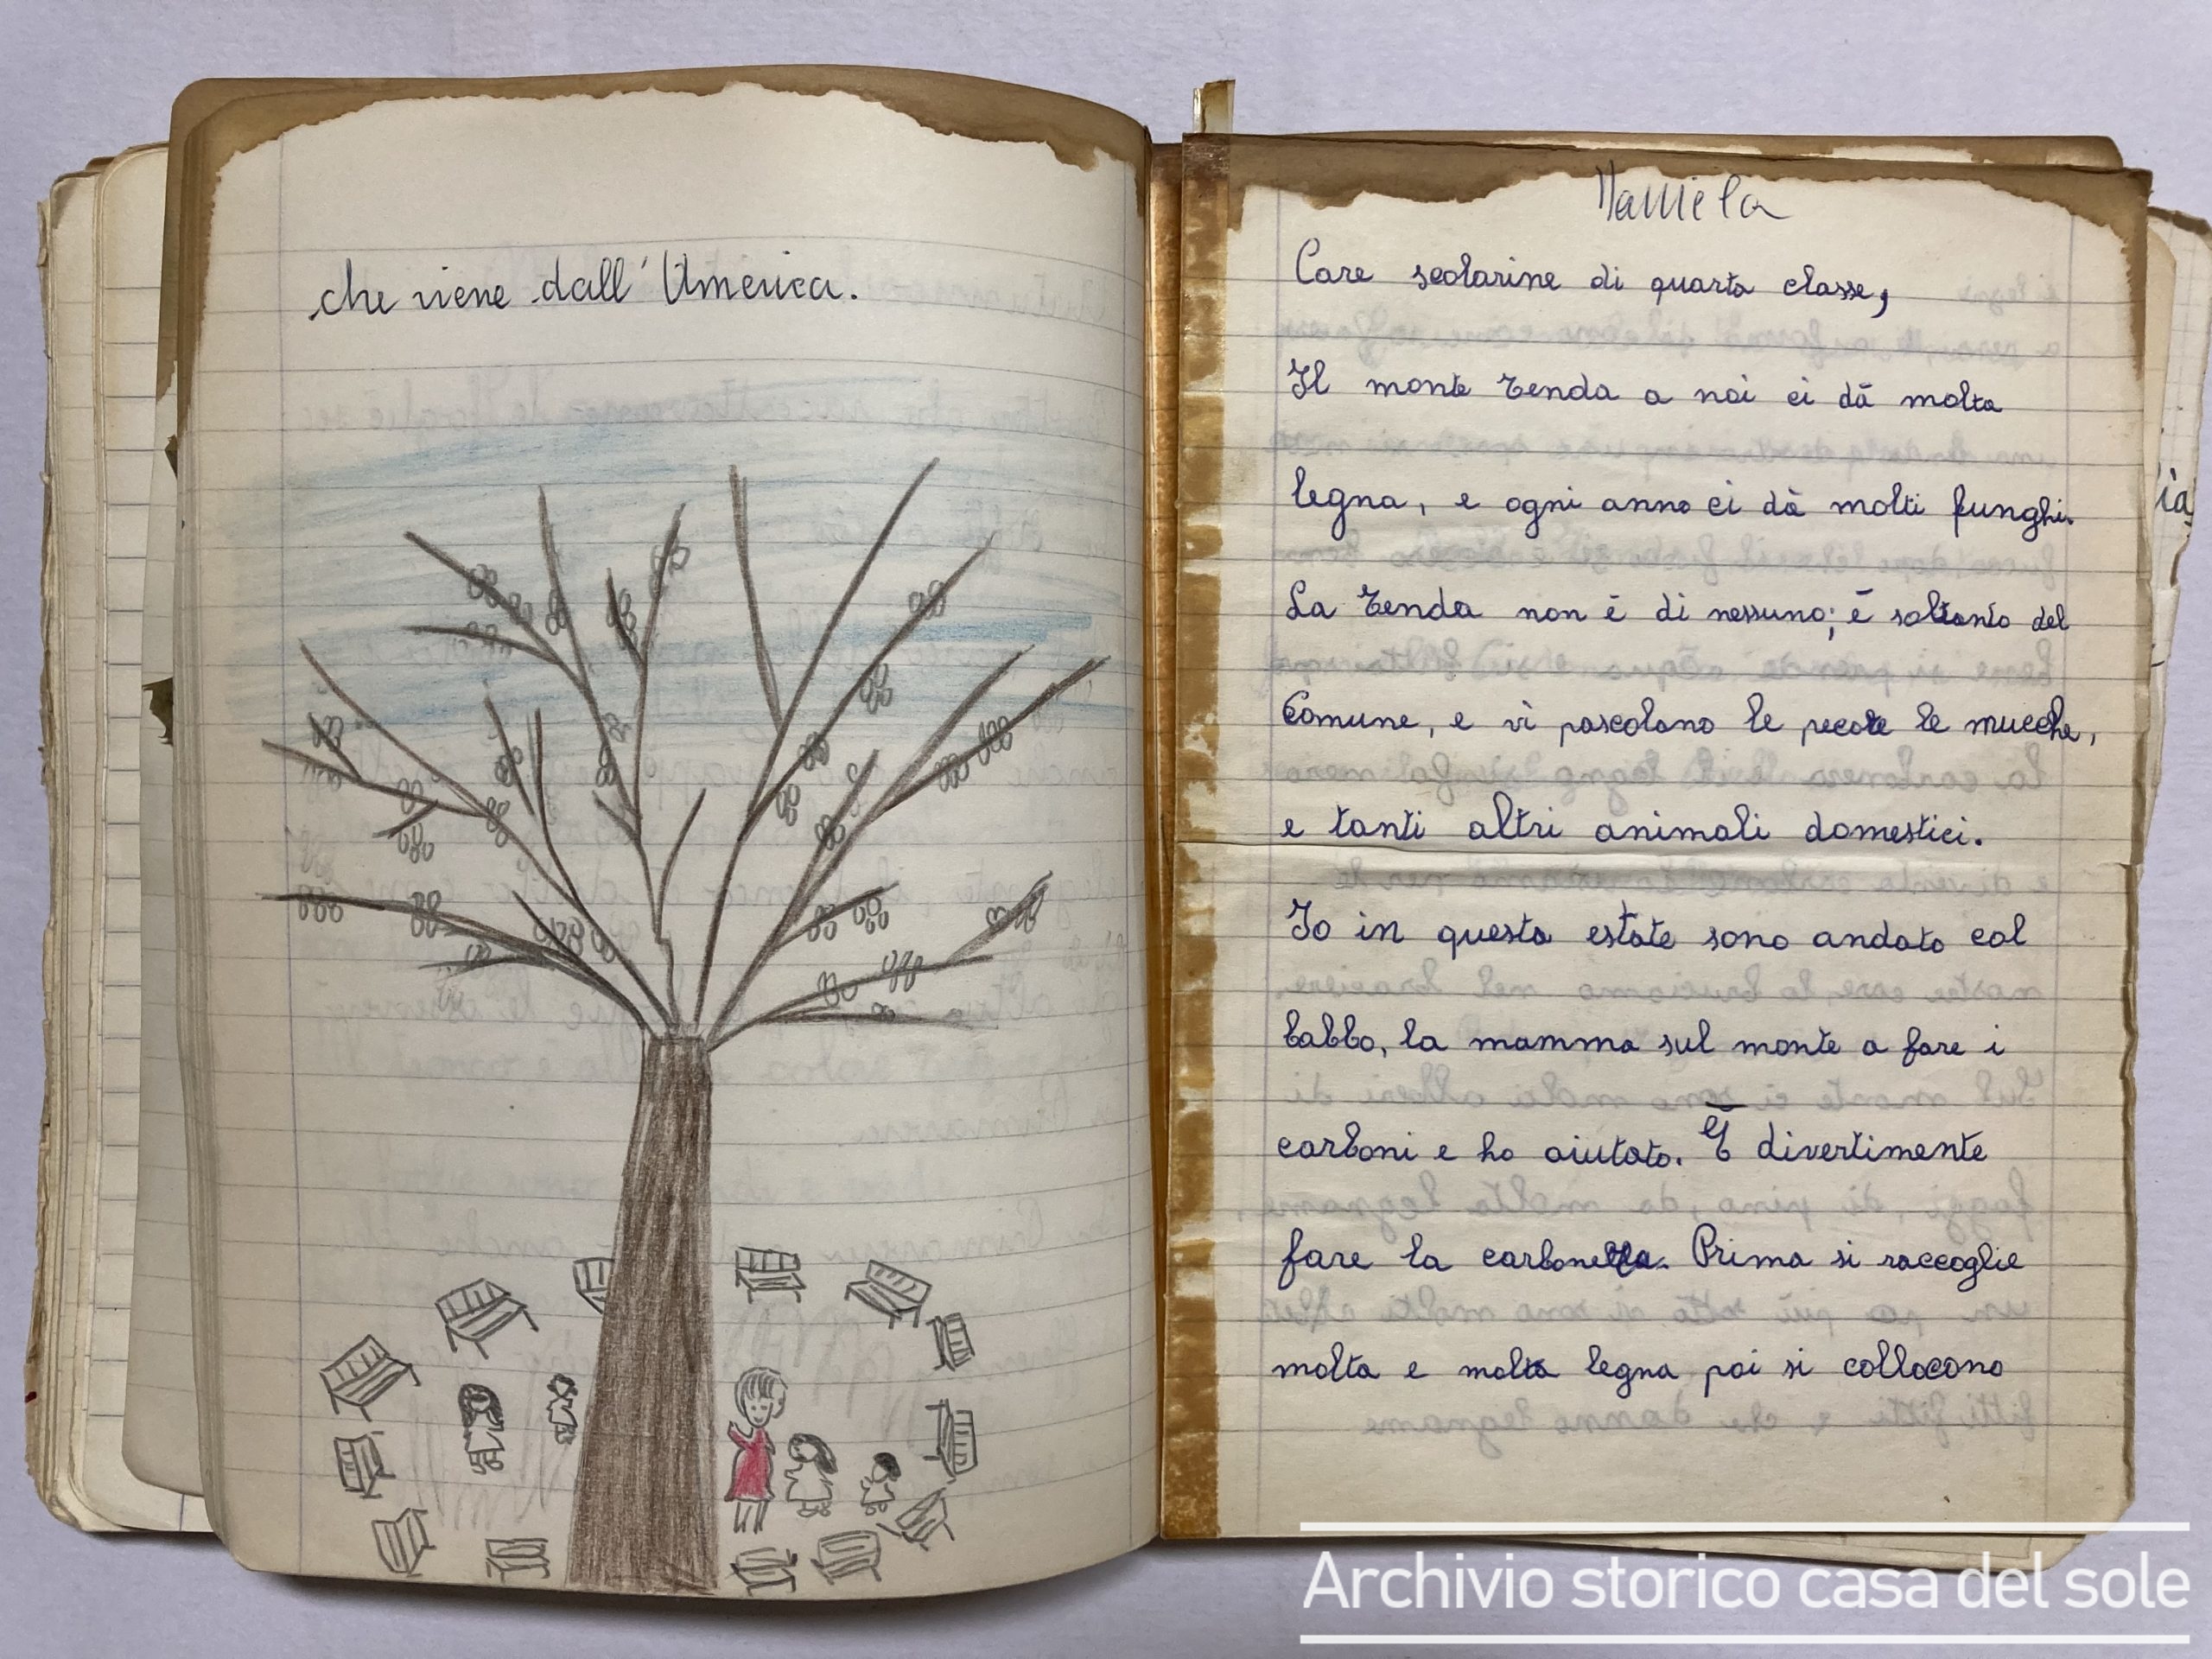 che viene dall'America.
Daniela
Care scolarine di quarta classe,
Il monte Tenda a noi ci dà molta
legna, e ogni anno ci dà molti funghi.
La Tenda non è di nessuno; è soltanto del
Comune, e vi pascolano le pecore le mucche,
e tanti altri animali domestici.
Io in questa estate sono andato col
babbo, la mamma sul monte a fare i
carboni e ho aiutato. È divertimente
fare la
Prima si raccoglie
molta e molta legna poi si collocano
ia
Archivio storico casa del sole